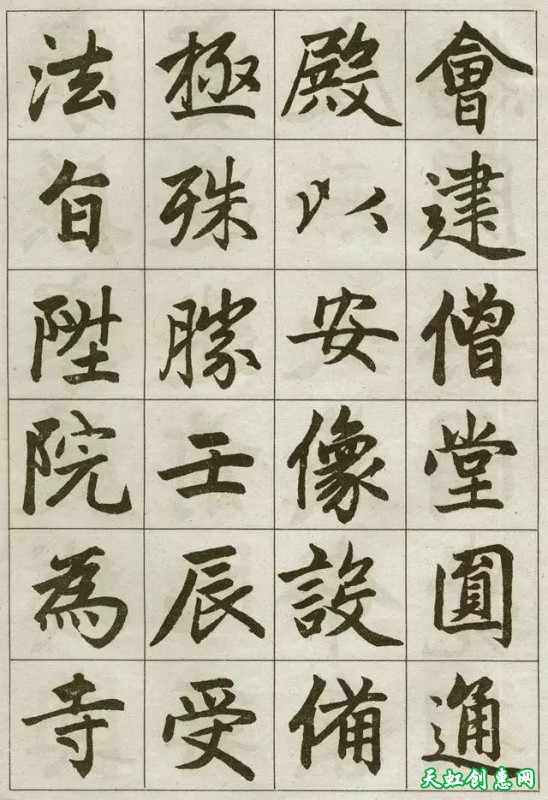 會建僧堂圓通
殿以安像設備
極殊勝壬辰受
法旨陞院為寺
天虹创惠网